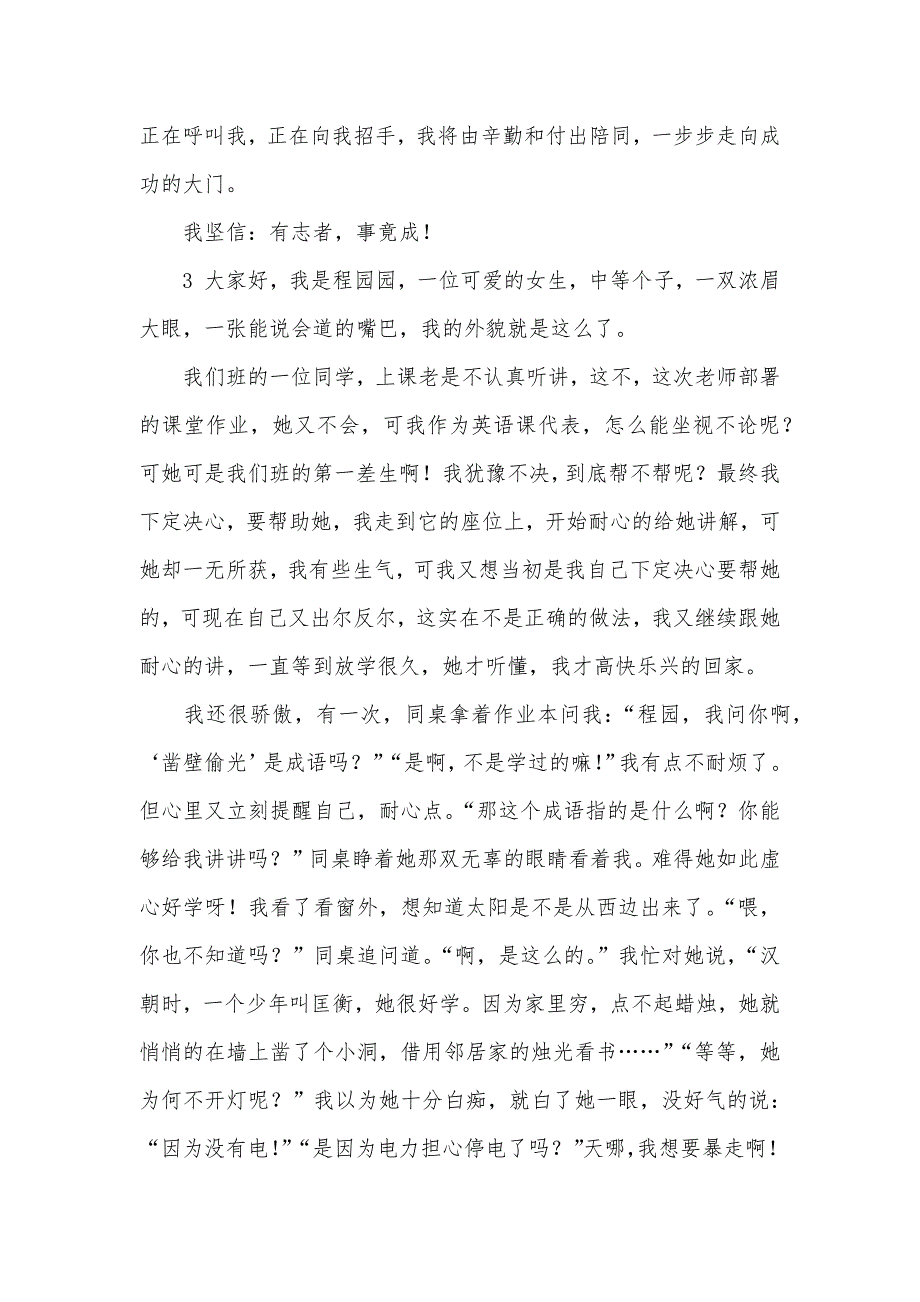 正在呼叫我，正在向我招手，我将由辛勤和付出陪同，一步步走向成
功的大门。
我坚信：有志者，事竟成！
3 大家好，我是程园园，一位可爱的女生，中等个子，一双浓眉
大眼，一张能说会道的嘴巴，我的外貌就是这么了。
我们班的一位同学，上课老是不认真听讲，这不，这次老师部署
的课堂作业，她又不会，可我作为英语课代表，怎么能坐视不论呢？
可她可是我们班的第一差生啊！我犹豫不决，到底帮不帮呢？最终我
下定决心，要帮助她，我走到它的座位上，开始耐心的给她讲解，可
她却一无所获，我有些生气，可我又想当初是我自己下定决心要帮她
的，可现在自己又出尔反尔，这实在不是正确的做法，我又继续跟她
耐心的讲，一直等到放学很久，她才听懂，我才高快乐兴的回家。
我还很骄傲，有一次，同桌拿着作业本问我：“程园，我问你啊，
‘凿壁偷光’是成语吗？”“是啊，不是学过的嘛！”我有点不耐烦了。
但心里又立刻提醒自己，耐心点。“那这个成语指的是什么啊？你能
够给我讲讲吗？”同桌睁着她那双无辜的眼睛看着我。难得她如此虚
心好学呀！我看了看窗外，想知道太阳是不是从西边出来了。“喂，
你也不知道吗？”同桌追问道。“啊，是这么的。”我忙对她说，“汉
朝时，一个少年叫匡衡，她很好学。因为家里穷，点不起蜡烛，她就
悄悄的在墙上凿了个小洞，借用邻居家的烛光看书……”“等等，她
为何不开灯呢？”我以为她十分白痴，就白了她一眼，没好气的说：
“因为没有电！”“是因为电力担心停电了吗？”天哪，我想要暴走啊！